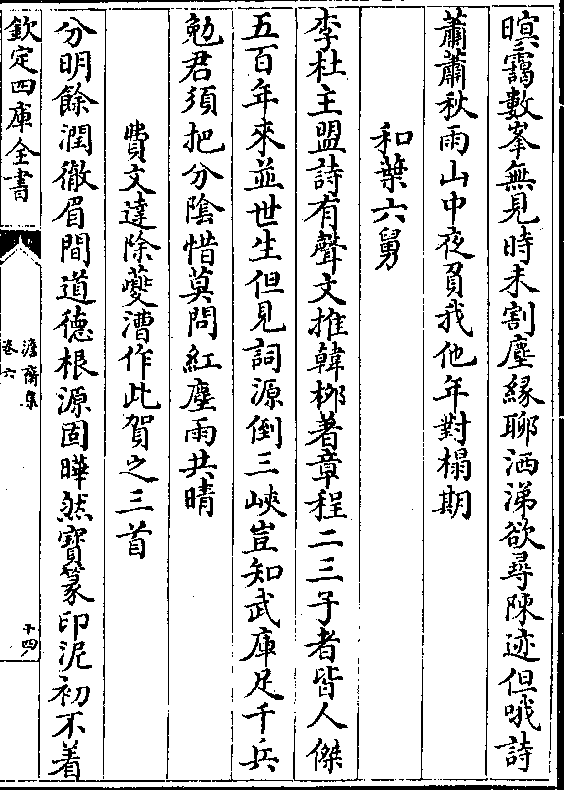 暝靄數峯無見時未割塵緣聊洒涕欲尋陳迹但哦詩
蕭蕭秋雨山中夜負我他年對榻期
和葉六舅
李杜主盟詩有聲文推韓柳著章程二三子者皆人傑
五百年來並世生但見詞源倒三峽豈知武庫足千兵
勉君須把分隂惜莫問紅塵雨共晴
費文達除夔漕作此賀之三首
分明餘潤徹眉間道德根源固曄然寳篆印泥初不着
欽定四庫全書
澹齋集
卷六
十四